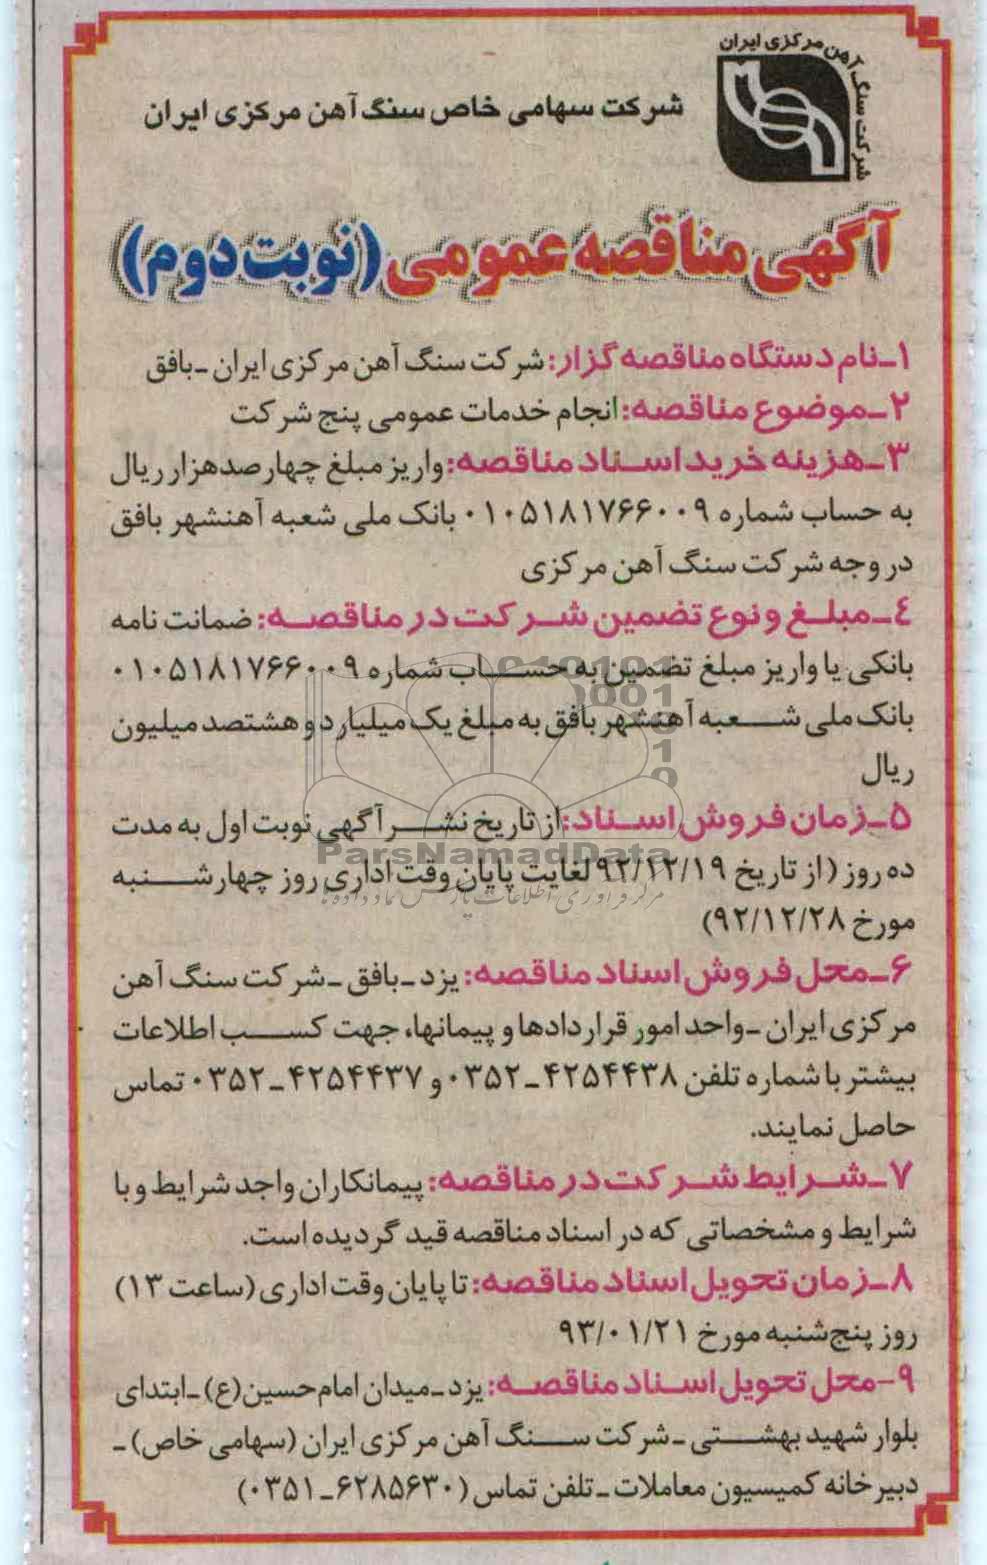 شرکت سنگ آهن مرکزی ایران
شرکت سهامی خاص سنگ آهن مرکزی ایران
آگهی مناقصه عمومی (نوبت دوم)
۱ـ نام دستگاه مناقصه گزار: شرکت سنگ آهن مرکزی ایران ـ بافق
۲ـ موضوع مناقصه: انجام خدمات عمومی پنج شرکت
۳ـ هزینه خرید اسناد مناقصه: واریز مبلغ چهارصد هزار ریال
به حساب شماره ۰۱۰۵۱۸۱۷۶۶۰۰۹ بانک ملی شعبه آهنشهر بافق
در وجه شرکت سنگ آهن مرکزی
۴ـ مبلغ و نوع تضمین شرکت در مناقصه: ضمانت نامه
بانکی یا واریز مبلغ تضمین به حساب شماره ۰۱۰۵۱۸۱۷۶۶۰۰۹
بانک ملی شعبه آهنشهر بافق به مبلغ یک میلیارد و هشتصد میلیون
ریال
۵ـ زمان فروش اسناد: از تاریخ نشر آگهی نوبت اول به مدت
ParsNamadData
ده روز (از تاریخ ۹۲/۱۲/۱۹ لغایت پایان وقت اداری روز چهارشنبه
مرکز فرآوری اطلاعات پارس نماد داده ها
مورخ ۹۲/۱۲/۲۸)
۶ـ محل فروش اسناد مناقصه: یزد ـ بافق ـ شرکت سنگ آهن
مرکزی ایران ـ واحد امور قراردادها و پیمانها، جهت کسب اطلاعات
بیشتر با شماره تلفن ۴۲۵۴۴۳۸ـ۰۳۵۲ و ۴۲۵۴۴۳۷ـ۰۳۵۲ تماس
حاصل نمایند.
۷ـ شرایط شرکت در مناقصه: پیمانکاران واجد شرایط و با
شرایط و مشخصاتی که در اسناد مناقصه قید گردیده است.
۸ـ زمان تحویل اسناد مناقصه: تا پایان وقت اداری (ساعت ۱۳)
روز پنج‌شنبه مورخ ۹۳/۰۱/۲۱
۹ـ محل تحویل اسناد مناقصه: یزد ـ میدان امام حسین (ع) ـ ابتدای
بلوار شهید بهشتی ـ شرکت سنگ آهن مرکزی ایران (سهامی خاص) ـ
دبیرخانه کمیسیون معاملات ـ تلفن تماس (۶۲۸۵۶۳۰ـ۰۳۵۱)